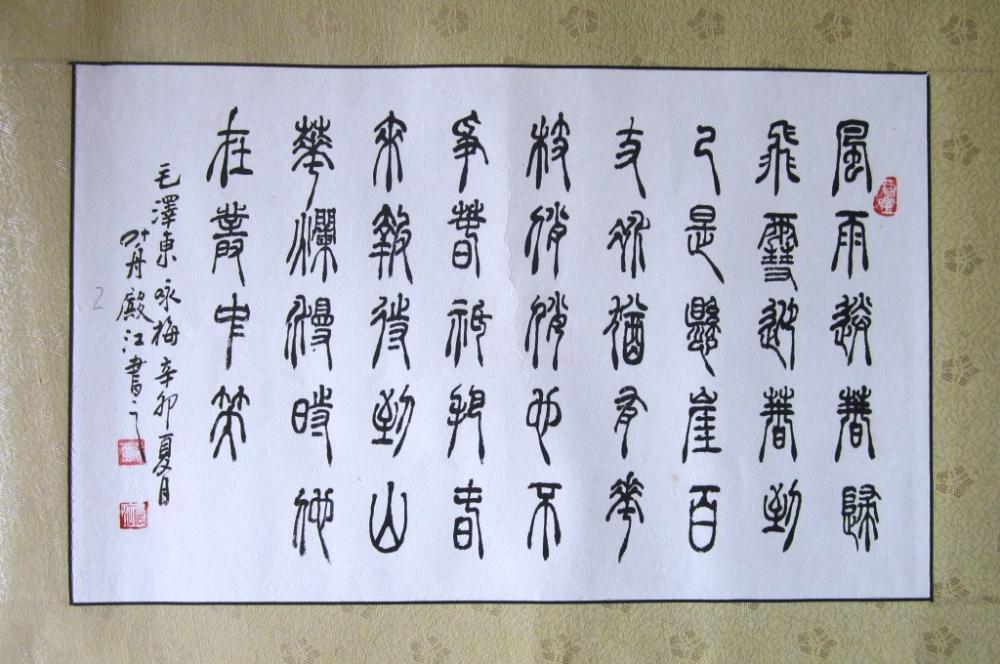 風雨送春歸
飛雪迎春到
已是懸崖百
丈冰猶有花
枝俏俏也不
爭春祇把春
來報待到山
華爛漫時他
在叢中笑
毛澤東咏梅辛卯夏月
殿江書之
2